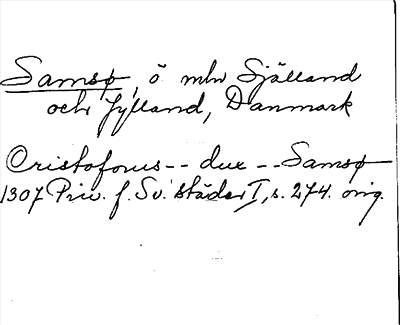 Samsø, ö mln Själland
och Jylland, Danmark
Cristoforus -- dux -- Samsø
1307 Priv. f. Sv. städer I, s. 274. orig.